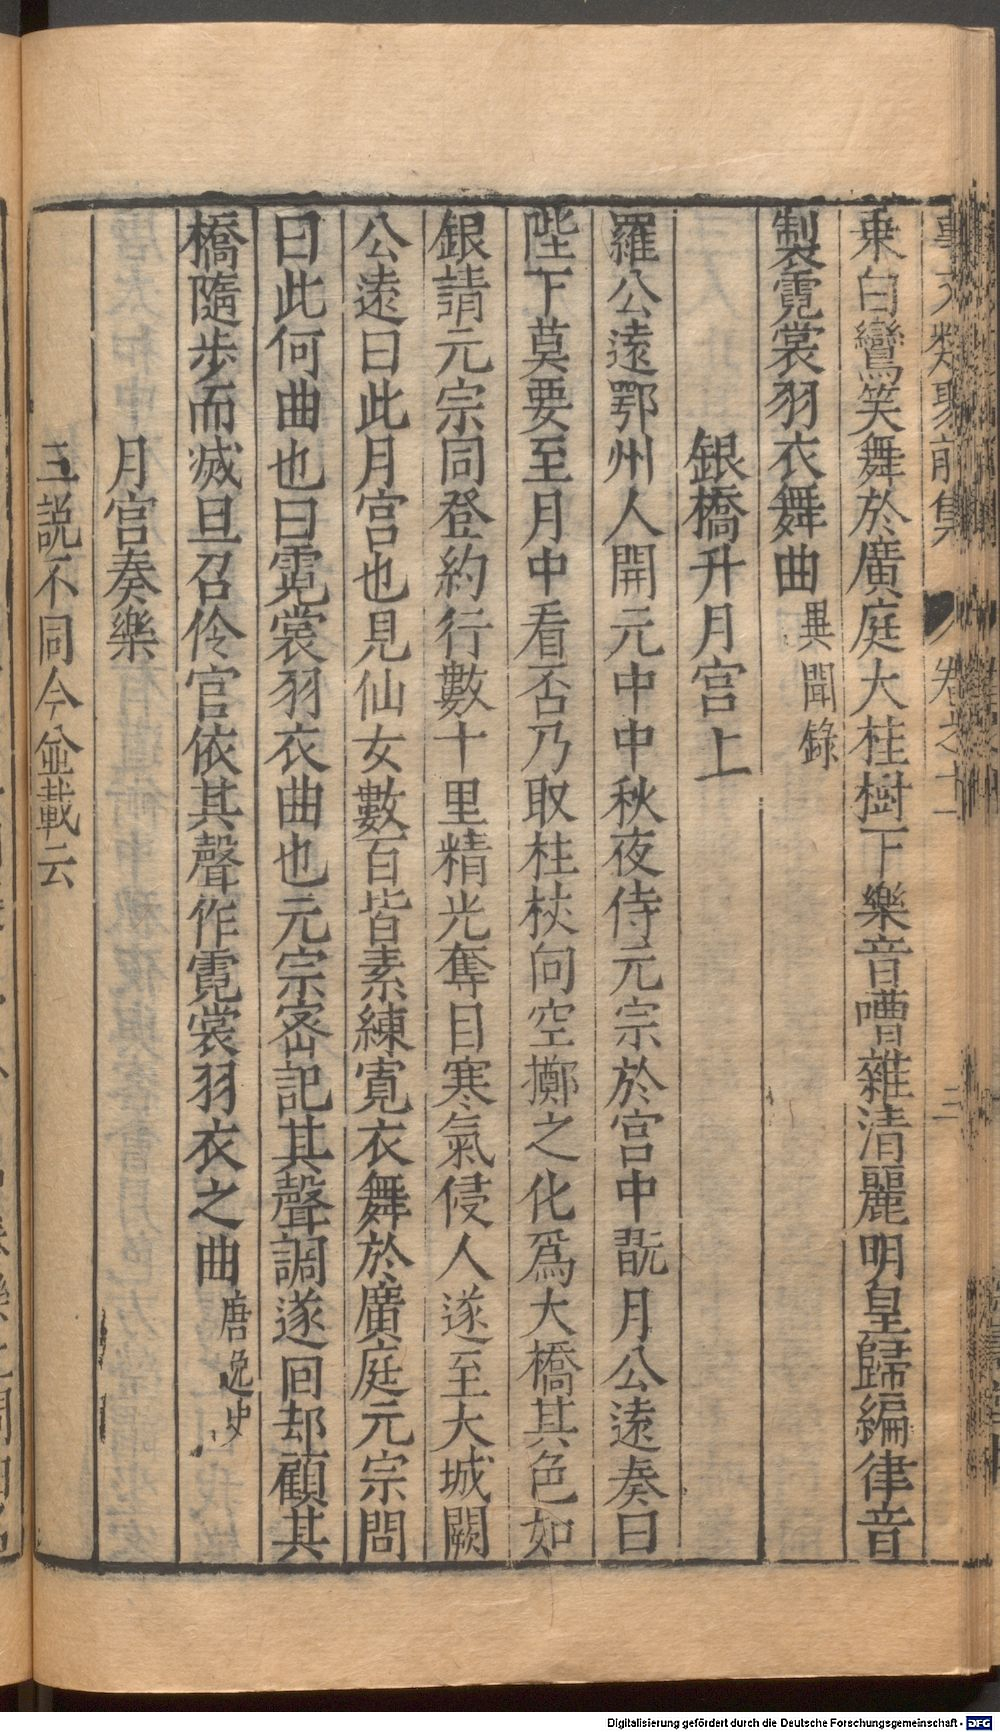 事文類聚前集 卷之十一 三
乗白鸞笑舞於廣庭大桂樹下樂音嘈雜清麗明皇歸編律音
製霓裳羽衣舞曲 異聞錄
銀橋升月宫上
羅公遠鄂州人開元中中秋夜侍元宗於宫中翫月公遠奏曰
陛下莫要至月中看否乃取柱杖向空擲之化爲大橋其色如
銀請元宗同登約行數十里精光奪目寒氣侵人遂至大城闕
公遠曰此月宫也見仙女數百皆素練寛衣舞於廣庭元宗問
曰此何曲也曰霓裳羽衣曲也元宗密記其聲調遂回却顧其
橋隨步而滅旦召伶官依其聲作霓裳羽衣之曲 唐逸史
月宫奏樂
三說不同今並載云
Digitalisierung gefördert durch die Deutsche Forschungsgemeinschaft - DFG